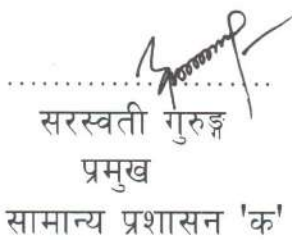 सरस्वती गुरुङ्ग
प्रमुख
सामान्य प्रशासन 'क'